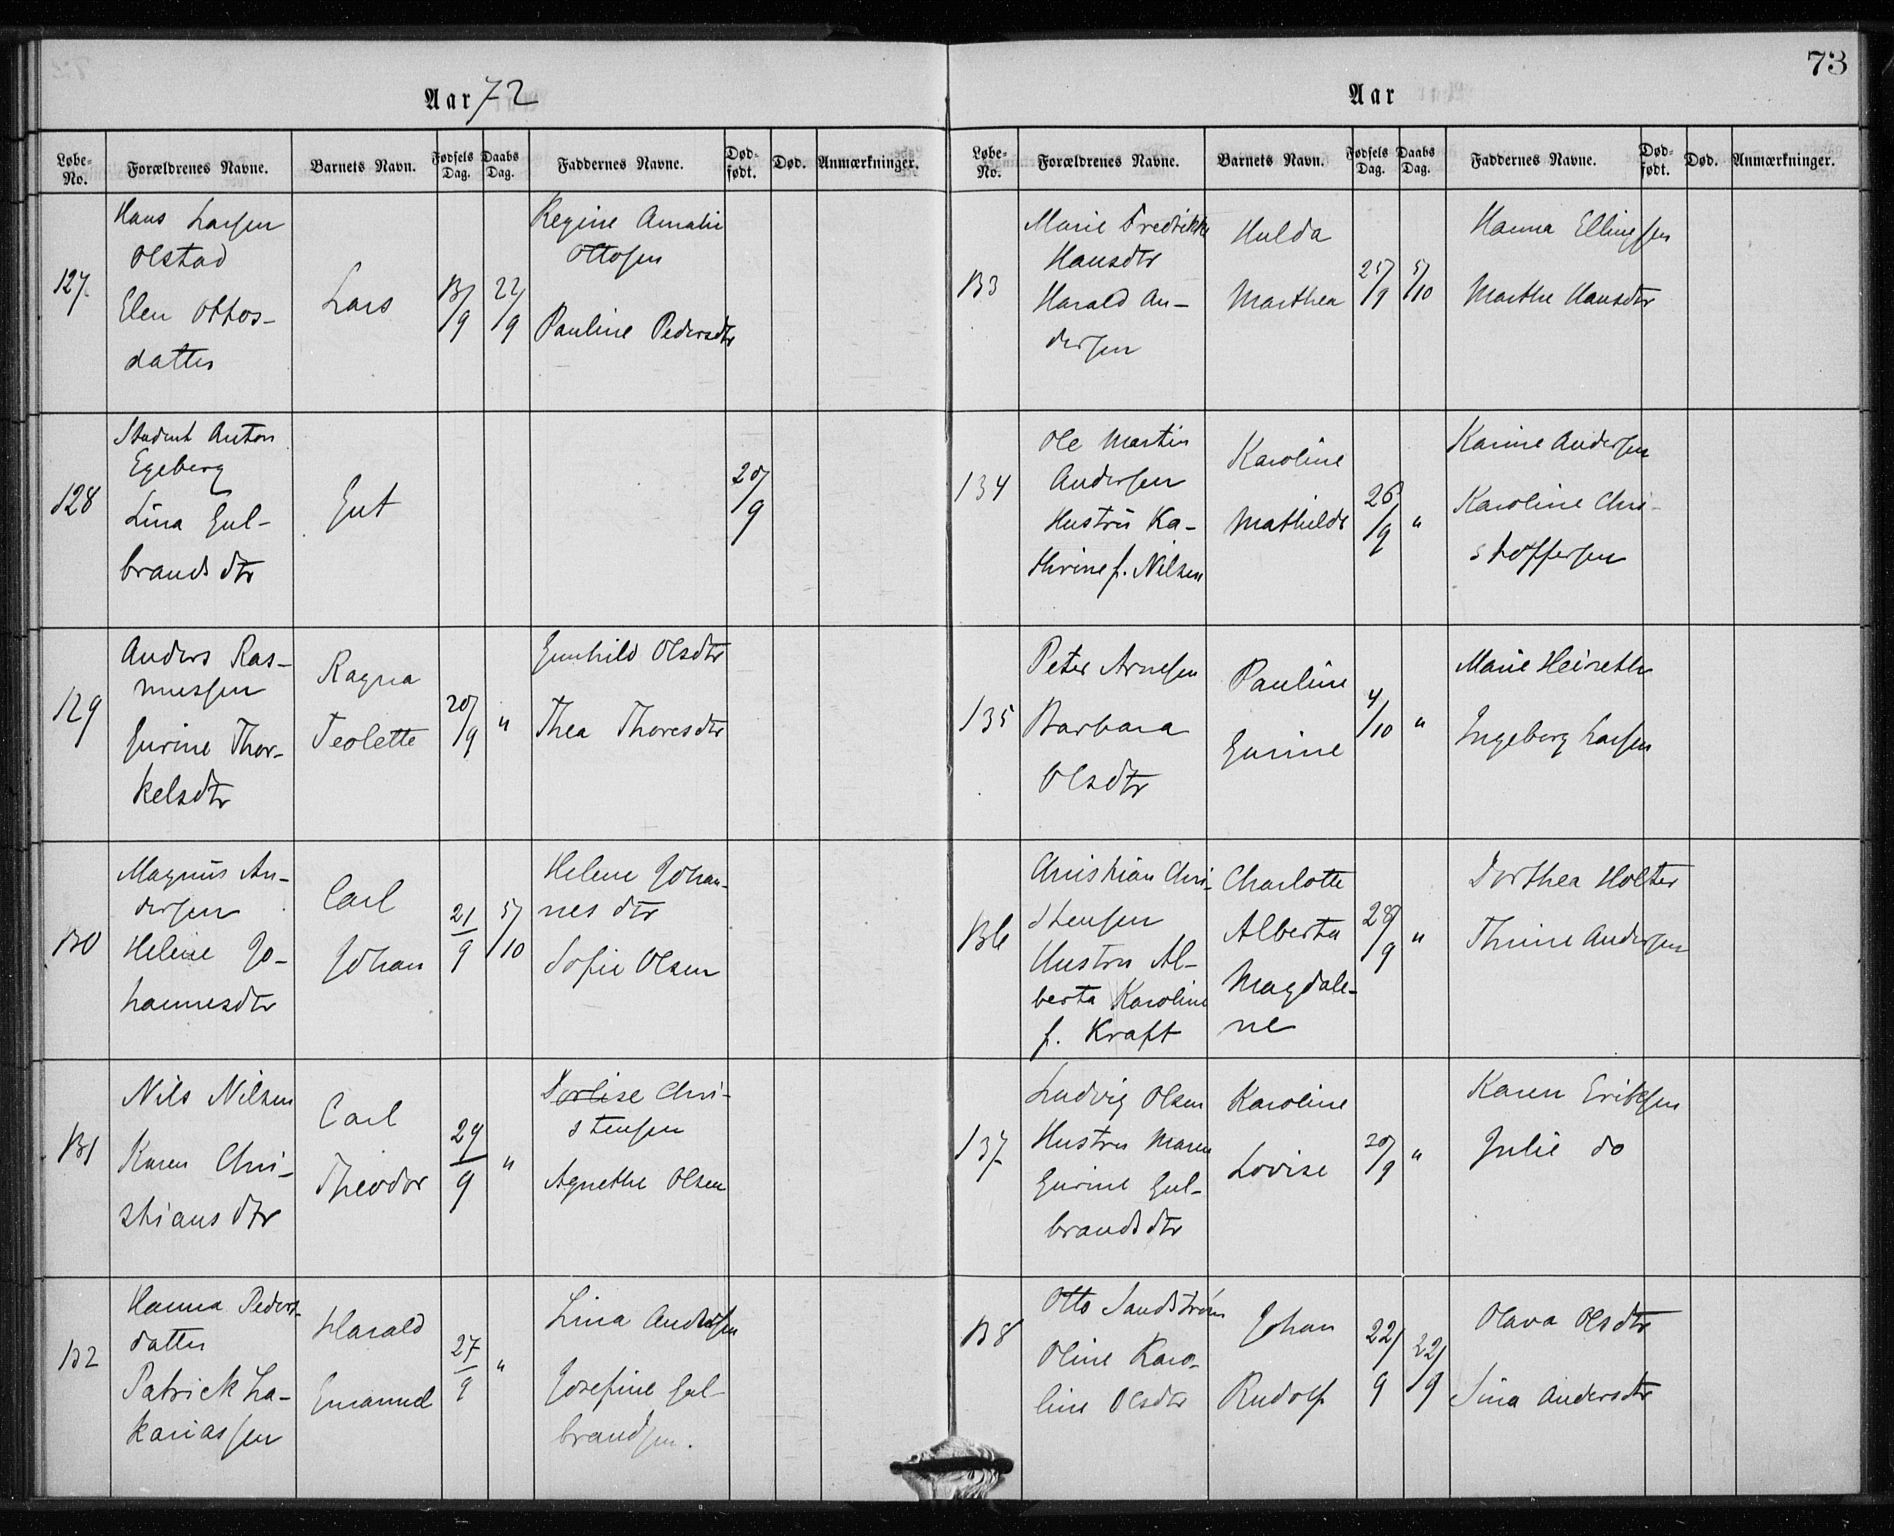 73
Aar 72
Løbe-No. Forældrenes Navne. Barnets Navn. Fødsels Dag. Daabs Dag. Faddernes Navne. Død-født. Død. Anmærkninger.
127.
Hans Larsen
Olstad
Elen Ottos-
datter
Lars
13/9
22/9
Regine Amalie
Ottosen
Pauline Pedersdtr
128
Student Anton
Egeberg
Lina Gul-
brandsdtr
Gut
20/9
129
Anders Ras-
mussen
Gurine Thor-
kelsdtr
Ragna
Teolette
20/9
"
Gunhild Olsdtr
Thea Thoresdtr
130
Magnus An-
dersen
Helene Jo-
hannesdtr
Carl
Johan
21/9
5/10
Helene Johan-
nesdtr
Sofie Olsen
131
Nils Nilsen
Karen Chri-
stiansdtr
Carl
Theodor
29/9
"
Dorlise Chri-
stensen
Agnethe Olsen
132
Hanna Peders-
datter
Patrick Za-
kariassen
Harald
Emanuel
27/9
"
Lina Andersen
Josefine Gul-
brandsen.
Aar
Løbe-No. Forældrenes Navne. Barnets Navn. Fødsels Dag. Daabs Dag. Faddernes Navne. Død-født. Død. Anmærkninger.
133
Marie Fredrikke
Hansdtr
Harald An-
dersen
Hulda
Marthea
25/9
5/10
Hanna Ellingsen
Marthe Hansdtr
134
Ole Martin
Andersen
Hustru Ka-
thrine f. Nilsen
Karoline
Mathilde
26/9
"
Karine Andersen
Karoline Chri-
stoffersen
135
Peter Arnesen
Barbara
Olsdtr
Pauline
Gurine
4/10
"
Marie
Ingeborg Larsen
136
Christian Chri-
stensen
Hustru Al-
berta Karoline
f. Kraft
Charlotte
Alberta
Magdale-
ne
28/9
"
Dorthea Holter
Thrine Andersen
137
Ludvig Olsen
Hustru Maren
Gurine Gul-
brandsdtr
Karoline
Lovise
20/9
"
Karen Eriksen
Julie do
138
Otto Sandstrøm
Oline Karo-
line Olsdtr
Johan
Rudolf
22/9
22/9
Olava Olsdtr
Sina Andersdtr